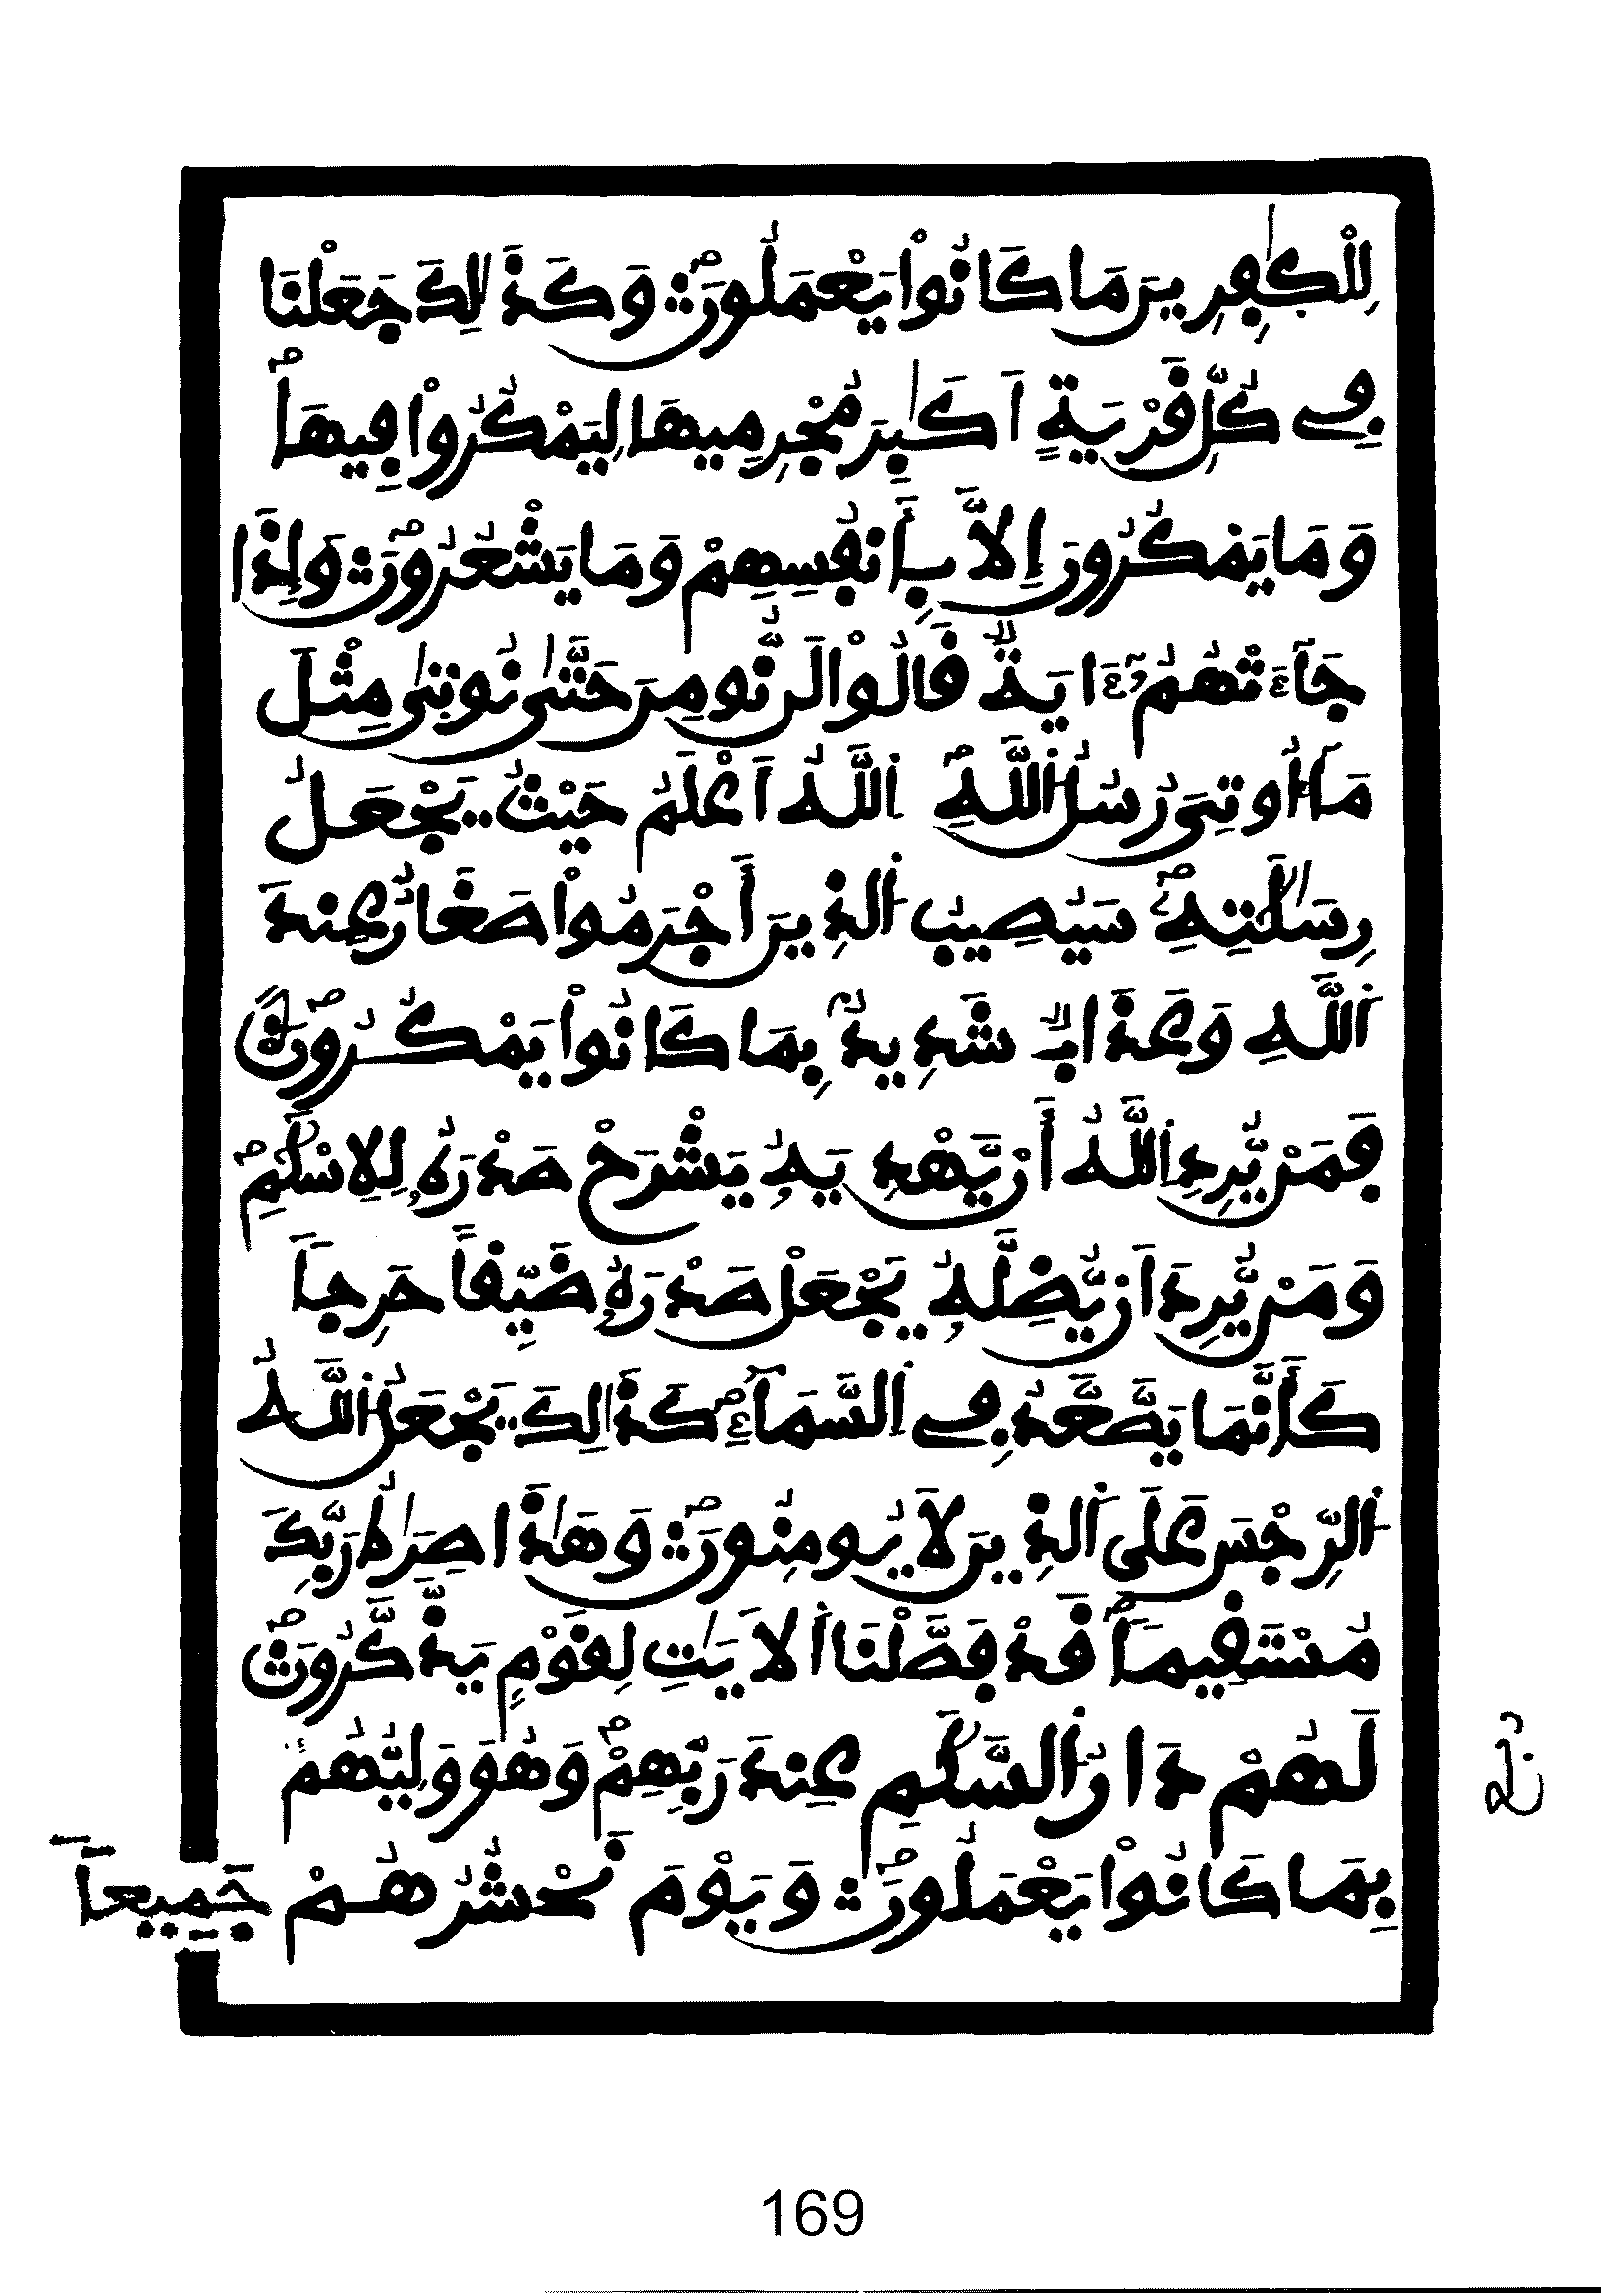 لِلْكٰفِرِينَ مَا كَانُواْ يَعْمَلُونَ وَكَذَٰلِكَ جَعَلْنَا
فِے كُلِّ قَرْيَةٍ اَكَٰبِرَ مُجْرِمِيهَا لِيَمْكُرُواْ فِيهَا
وَمَا يَمْكُرُونَ إِلاَّ بِأَنفُسِهِمْ وَمَا يَشْعُرُونَ وَإِذَا
جَآءَتْهُمُۥٓ ءَايَةٞ قَالُواْ لَن نُّومِنَ حَتَّىٰ نُوتىٰ مِثْلَ
مَآ أُوتِىَ رُسُلُ اُللَّهِ اِ۬للَّهُ أَعْلَمُ حَيْثُ يَجْعَلُ
رِسَٰلَٰتِهِۦ سَيُصِيبُ اُ۬لذِينَ أَجْرَمُواْ صَغَارٌ عِندَ
اَ۬للَّهِ وَعَذَابٞ شَدِيدٌ بِمَا كَانُواْ يَمْكُرُونَ
فَمَنْ يُّرِدِ اِ۬للَّهُ أَنْ يَّهْدِيَهُۥ يَشْرَحْ صَدْرَهُۥ لِلِاسْلَٰمِ
وَمَنْ يُّرِدَ اَنْ يُّضِلَّهُۥ يَجْعَلْ صَدْرَهُۥ ضَيِّقاً حَرِجاً
كَأَنَّمَا يَصَّعَّدُ فِے اِ۬لسَّمَآءِ كَذَٰلِكَ يَجْعَلُ اُ۬للَّهُ
اُ۬لرِّجْسَ عَلَى اَ۬لذِينَ لَا يُومِنُونَ وَهَٰذَا صِرَٰطُ رَبِّكَ
مُسْتَقِيماً قَدْ فَصَّلْنَا اَ۬لَايَٰتِ لِقَوْمٍ يَذَّكَّرُونَ
لَهُمْ دَارُ اُ۬لسَّلَٰمِ عِندَ رَبِّهِمْ وَهُوَ وَلِيُّهُم
بِمَا كَانُواْ يَعْمَلُونَ وَيَوْمَ نَحْشُرُهُمْ جَمِيعاً
169